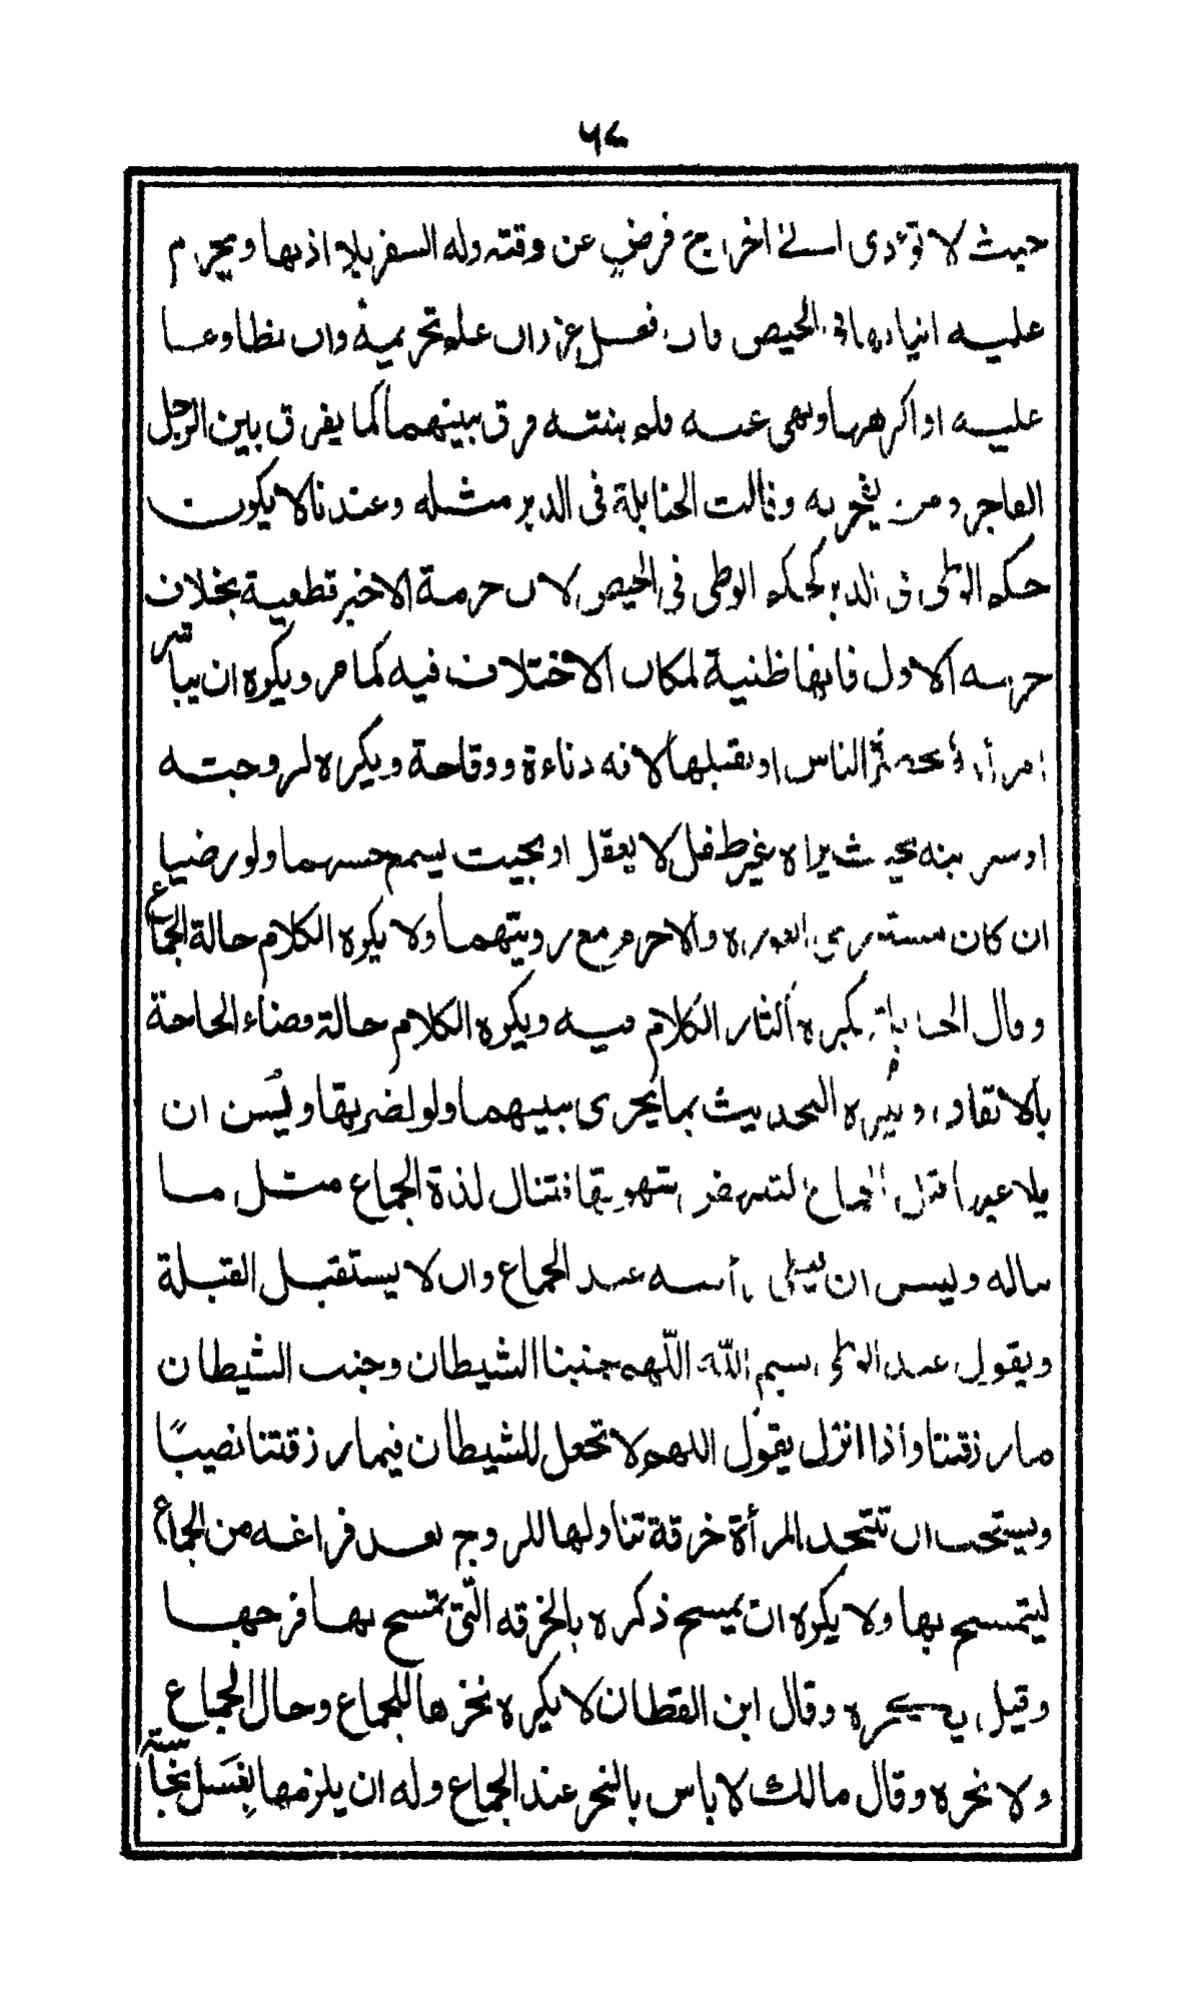 ٦٨
حيث لا تؤدى الى اخراج فرض عن وقته وله السفر بلا اذنها ويحرم
عليه اتيانها فى الحيض فان فعل عزران علم تحريمه وان تطاوعا
عليه او اكرهها ونهى عنه فلم ينته فرق بينهما كما يفرق بين الرجل
الفاجر ومن يفجر به وقالت الحنابلة فى الدبر مثله وعندنا لا يكون
حكم الوطى فى الدبر كحكم الوطى فى الحيض لان حرمة الاخير قطعية بخلاف
حرمه الاول فانها ظنية لمكان الاختلاف فيه كما مر ويكره ان يباشر
امرأته بحضرة الناس او يقبلها لانه دناءة ووقاحة ويكره لزوجته
او سريته بحيث يراه غير طفل لا يعقل او بحيث يسمع حسهما ولو رضيا
ان كان مستورى العوره والاحرم مع رويتهما ولا يكره الكلام حالة الجماع
وقال الحنابلة يكره اكثار الكلام فيه ويكره الكلام حالة قضاء الحاجة
بالاتفاق ويكره التحديث بما يجرى بينهما ولو لضرتها ويسن ان
يلاعبها قبل الجماع لتنهض شهوتها فتنال لذة الجماع مثل ما
ناله وليس ان يغطى رأسه عند الجماع وان لا يستقبل القبلة
ويقول عند الوطى بسم الله اللهم جنبنا الشيطان وجنب الشيطان
مارزقتنا وأذا انزل يقول اللهم لا تجعل للشيطان فيما رزقتنا نصيبًا
ويستحب ان تتخذ المرأة خرقة تناولها للزوج بعد فراغه من الجماع
ليتمسح بها ولا يكره ان يمسح ذكره بالخرقه التى تمسح بها فرجها
وقيل يكره وقال ابن القطان لا يكره نخرها للجماع وحال الجماع
ولا نخره وقال مالك لا باس بالنخر عند الجماع وله ان يلزمها بغسل نجاسة